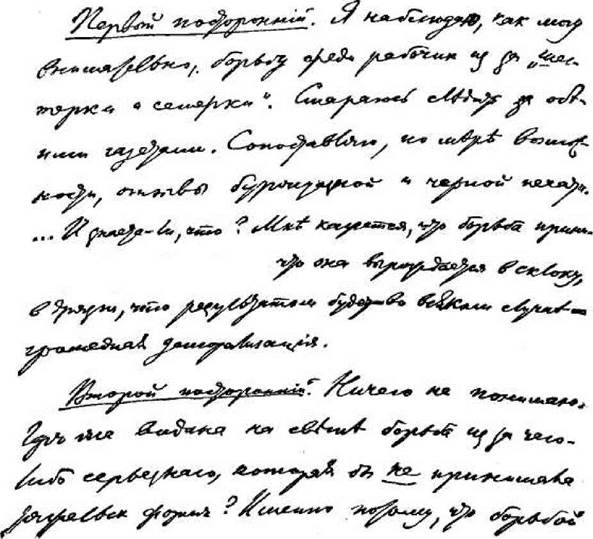 Первый посторонній. Я наблюдаю, как могу
внимательно, борьбу среди рабочих из за „шес-
терки и семерки“. Стараюсь слѣдить за обѣ-
ими газетами. Сопоставляю, по мѣрѣ возмож-
ности, отзывы буржуазной и черной печати.
... И знаете-ли, что? Мнѣ кажется, что борьба прини-
что она вырождается в склоку,
в дрязги, что результатом будет во всяком случаѣ
громадная деморализація.
Второй посторонній. Ничего не понимаю.
Гдѣ же видана на свѣтѣ борьба из за чего-
либо серьезнаго, которая бы не принимала
форм? Именно потому, что борьбой